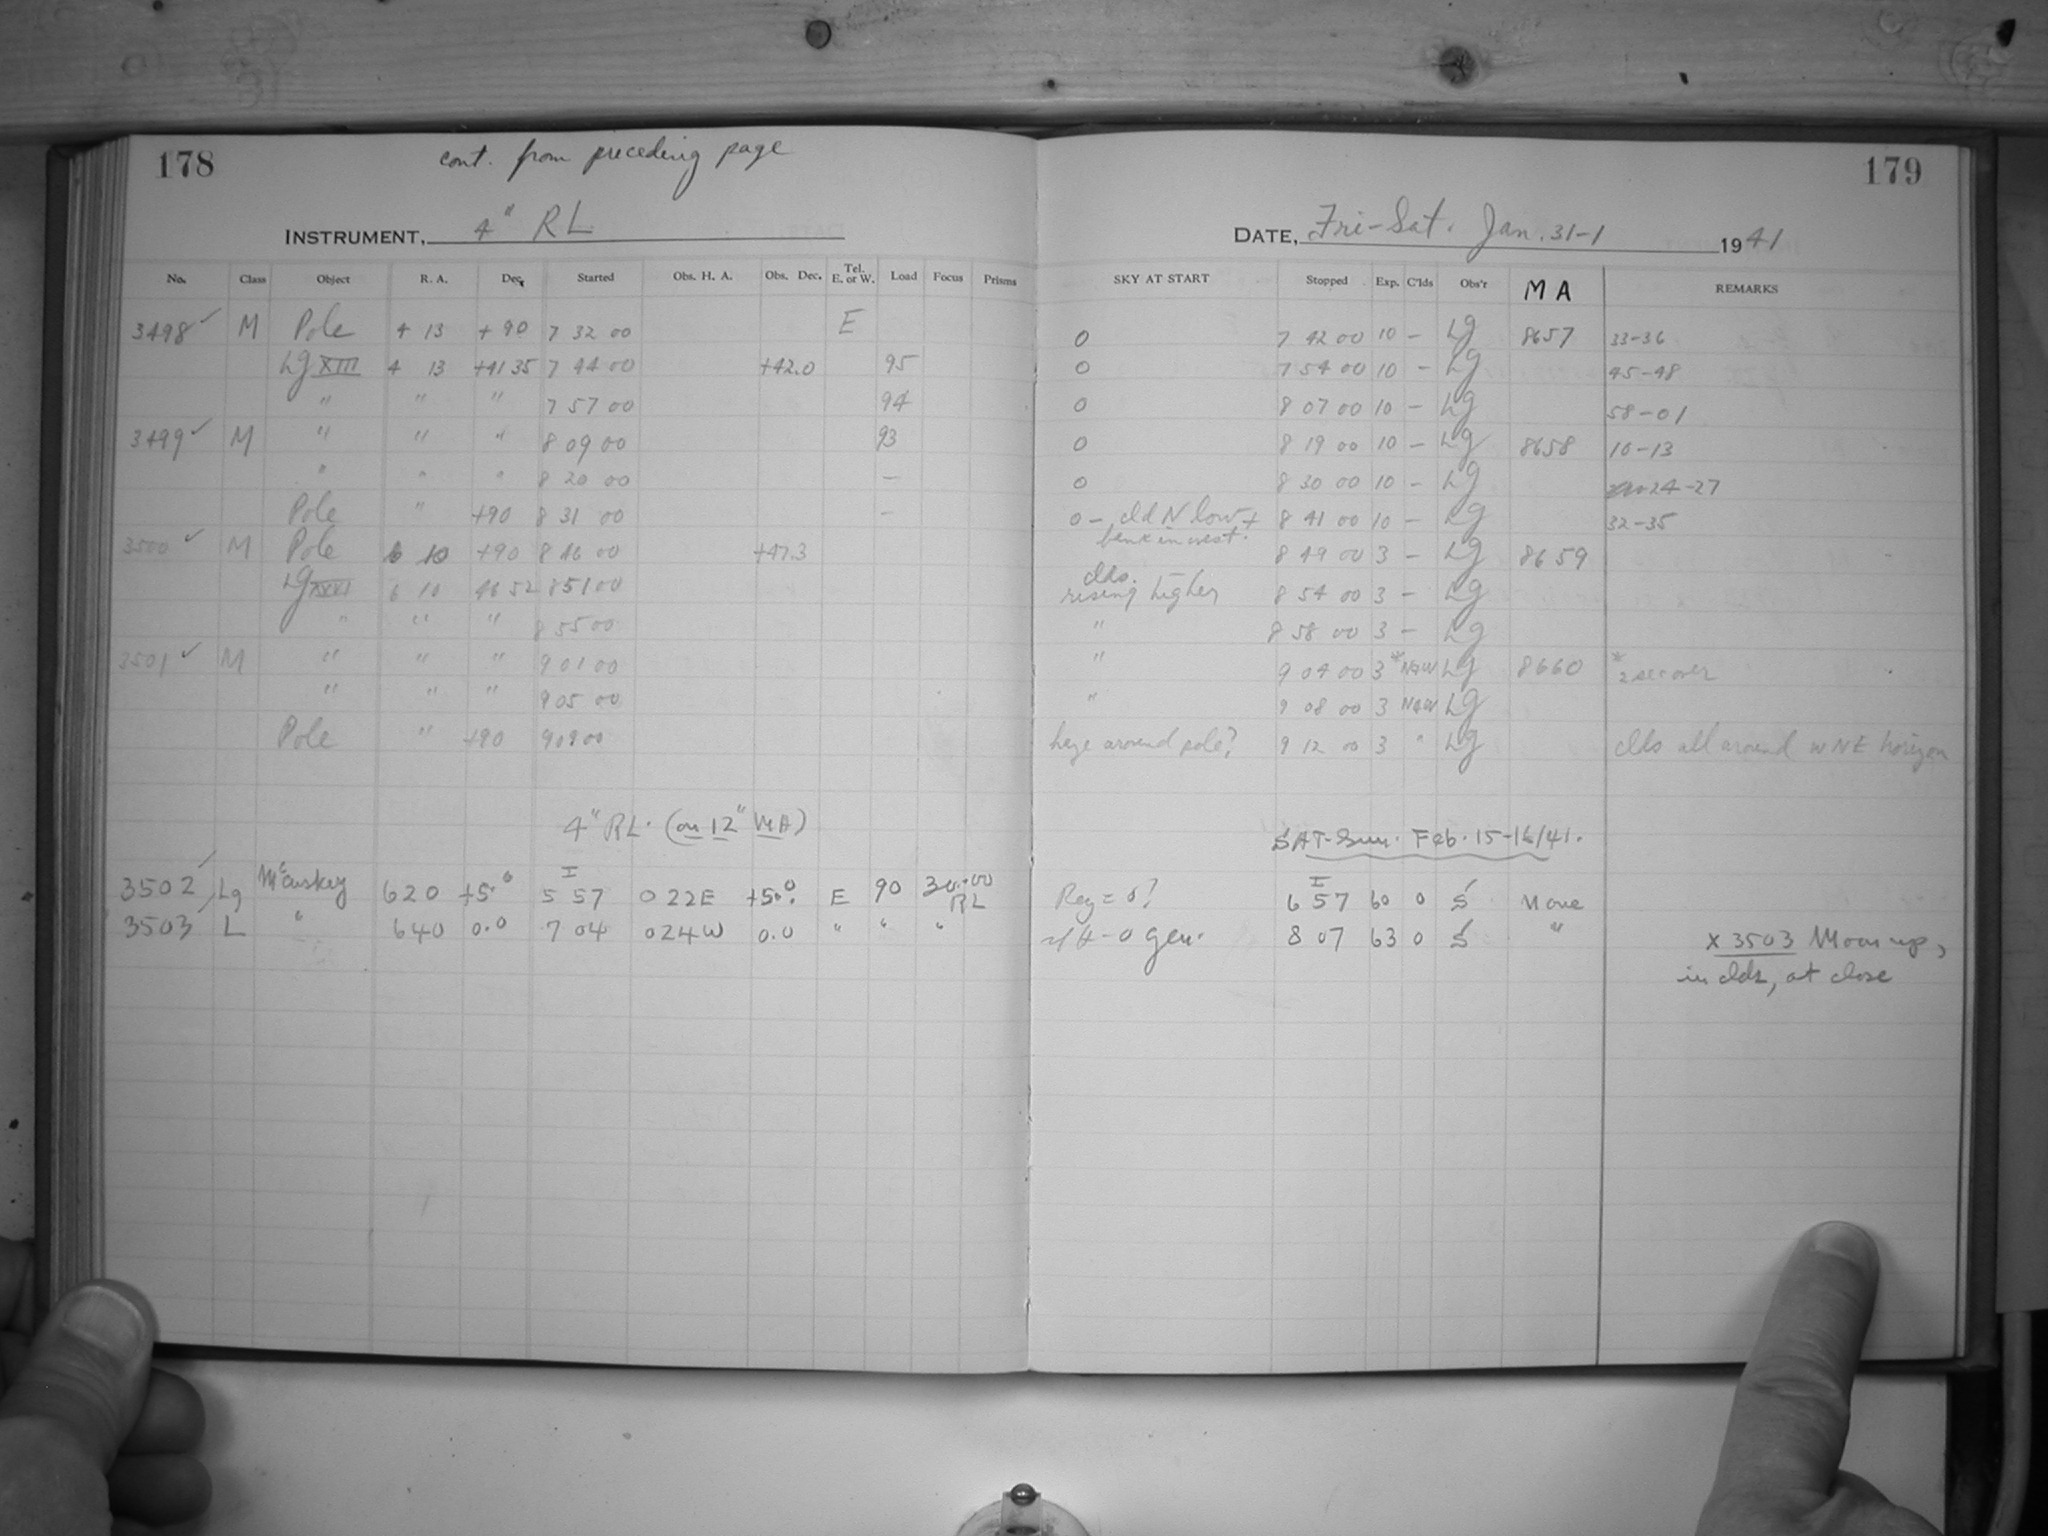 178
cont. from preceding page
INSTRUMENT, 4" RL
No. Class Object R. A. Dec. Started Obs. H. A. Obs. Dec. Tel. E. or W. Load Focus Prisms
3498 ✓ M Pole 4 13 +90 7 32 00 E
Lg XIII 4 13 +41 35 7 44 00 +42.0 95
" " " 7 57 00 94
3499 ✓ M " " " 8 09 00 93
" " " 8 20 00 —
Pole " +90 8 31 00 –
3500 ✓ M Pole 6 10 +90 8 46 00 +47.3
Lg 6 10 46 52 8 51 00
" " " 8 55 00
3501 ✓ M " " " 9 01 00
" " " 9 05 00
Pole " +90 9 09 00
4" RL. (on 12" MA)
3502 ✓ Lg McCuskey 620 +5.0 I 5 57 0 22E +5.0 E 90 30.00 RL
3503 L " 640 0.0 7 04 024W 0.0 " " "
179
DATE, Fri-Sat. Jan. 31-1 1941
SKY AT START Stopped Exp. C'lds Obs'r M A REMARKS
0 7 42 00 10 – Lg 8657 33-36
0 7 54 00 10 – Lg 45-48
0 8 07 00 10 – Lg 58-01
0 8 19 00 10 – Lg 8658 10-13
0 8 30 00 10 – Lg 24-27
0 – cld N low + 8 41 00 10 – Lg 32-35
bank in west. 8 49 00 3 – Lg 8659
clds.
rising higher 8 54 00 3 – Lg
" 8 58 00 3 – Lg
" 9 04 00 3* N&W Lg 8660 * 2 sec over
" 9 08 00 3 N&W Lg
haze around pole? 9 12 00 3 " Lg clds all around WNE horizon
SAT-Sun. Feb. 15-16/41.
Reg = 0? I 6 57 60 0 S None
0 gen. 8 07 63 0 S "
x 3503 Moon up,
in clds, at close